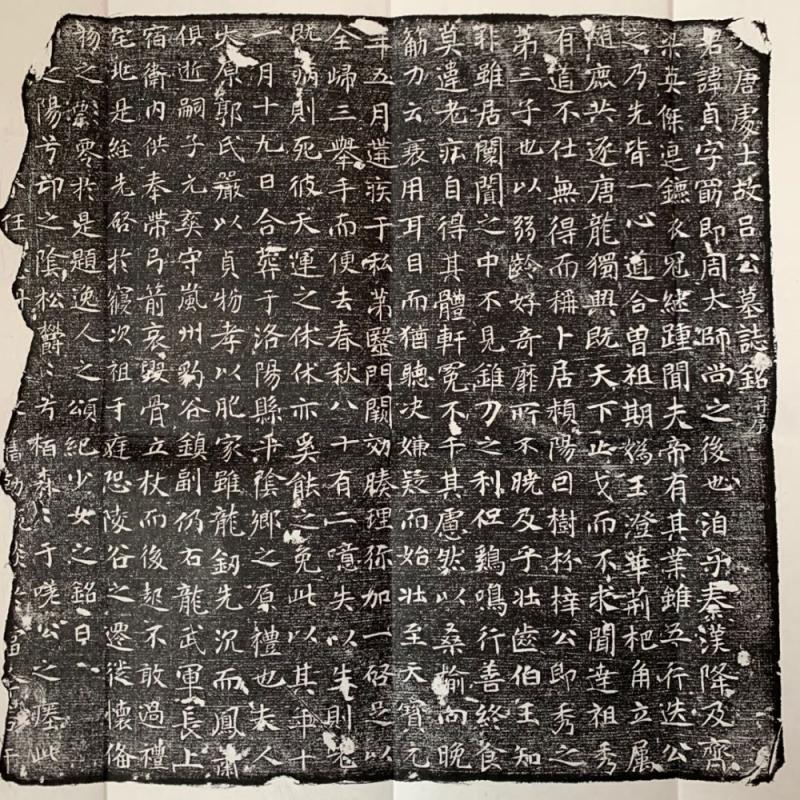 唐處士故呂公墓誌銘并序
君諱貞字罰即周太師尚之後也洎乎秦漢降及齊
梁英傑連鑣衣冠繼踵聞夫帝有其業雖五行迭公
之乃先皆一心道合曾祖期為王澄華荊杞角立屬
隨鹿共逐唐龍獨興既天下止戈而不求聞達祖秀
有道不仕無得而稱卜居潁陽曰樹枌梓公即秀之
第三子也以弱齡好奇靡所不曉及乎壯齒伯王知
非雖居闤闠之中不見錐刀之利但鷄鳴行善終食
莫違老疾自得其體軒冕不干其慮然以桑榆向晚
筋力云衰用耳目而猶聽決嫌疑而始壯至天寶元
年五月遘疾于私第醫門闕効腠理弥加一啓足以
全歸三舉手而便去春秋八十有二噫失以生則老
既病則死彼天運之休休亦奚能之免此以其年十
一月十九日合葬于洛陽縣平陰鄉之原禮也夫人
太原郭氏嚴以貞物孝以肥家雖龍釼先沉而鳳肅
俱逝嗣子元奕守嵐州豹谷鎮副仍右龍武軍長上
宿衛內供奉帶弓箭哀毀骨立杖而後起不敢過禮
宅兆是經先啓於寢次祖于庭恐陵谷之遷徙懷俻
物之 零於是題逸人之頌紀少女之銘曰
之陽兮邙之陰松欝〻兮栢森〻于嗟公之 此